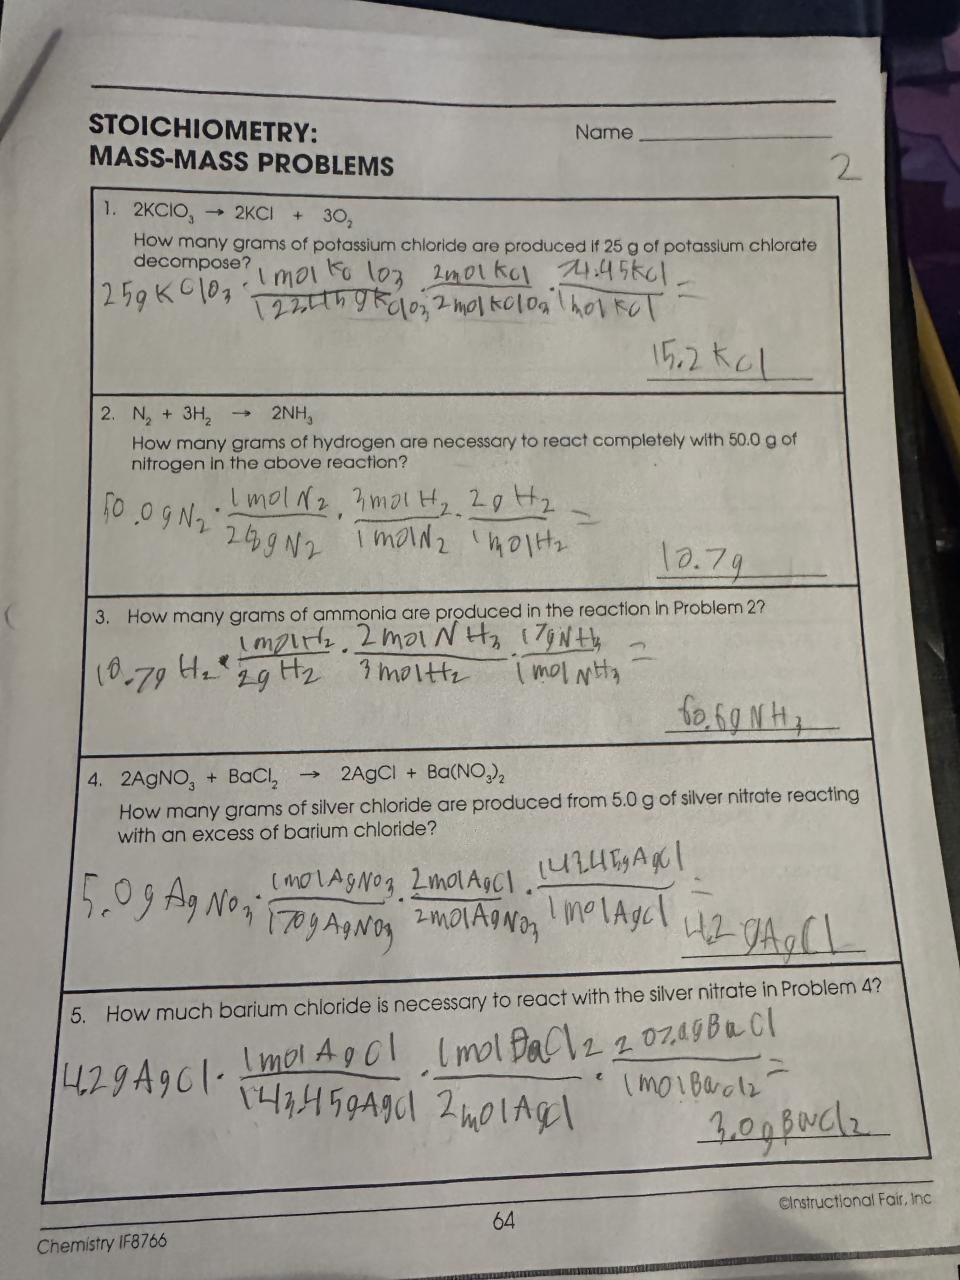 STOICHIOMETRY:
MASS-MASS PROBLEMS
Name
2
1. 2KClO₃ → 2KCl + 3O₂
How many grams of potassium chloride are produced if 25 g of potassium chlorate
decompose?
25g KClO₃ · 1 mol KClO₃ / 122.45g KClO₃ · 2mol KCl / 2mol KClO₃ · 74.45KCl / 1mol KCl =
15.2 KCl
2. N₂ + 3H₂ → 2NH₃
How many grams of hydrogen are necessary to react completely with 50.0 g of
nitrogen in the above reaction?
50.0g N₂ · 1 mol N₂ / 28g N₂ · 3mol H₂ / 1 mol N₂ · 2g H₂ / 1mol H₂ =
10.7g
3. How many grams of ammonia are produced in the reaction in Problem 2?
10.7g H₂ · 1mol H₂ / 2g H₂ · 2mol NH₃ / 3mol H₂ · 17g NH₃ / 1mol NH₃ =
60.6g NH₃
4. 2AgNO₃ + BaCl₂ → 2AgCl + Ba(NO₃)₂
How many grams of silver chloride are produced from 5.0 g of silver nitrate reacting
with an excess of barium chloride?
5.0g AgNO₃ · 1mol AgNO₃ / 170g AgNO₃ · 2mol AgCl / 2mol AgNO₃ · 143.45g AgCl / 1mol AgCl =
4.2 gAgCl
5. How much barium chloride is necessary to react with the silver nitrate in Problem 4?
4.2g AgCl · 1mol AgCl / 143.45g AgCl · 1mol BaCl₂ / 2mol AgCl · BaCl / 1mol BaCl₂ =
3.0g BaCl₂
64
©Instructional Fair, Inc
Chemistry IF8766